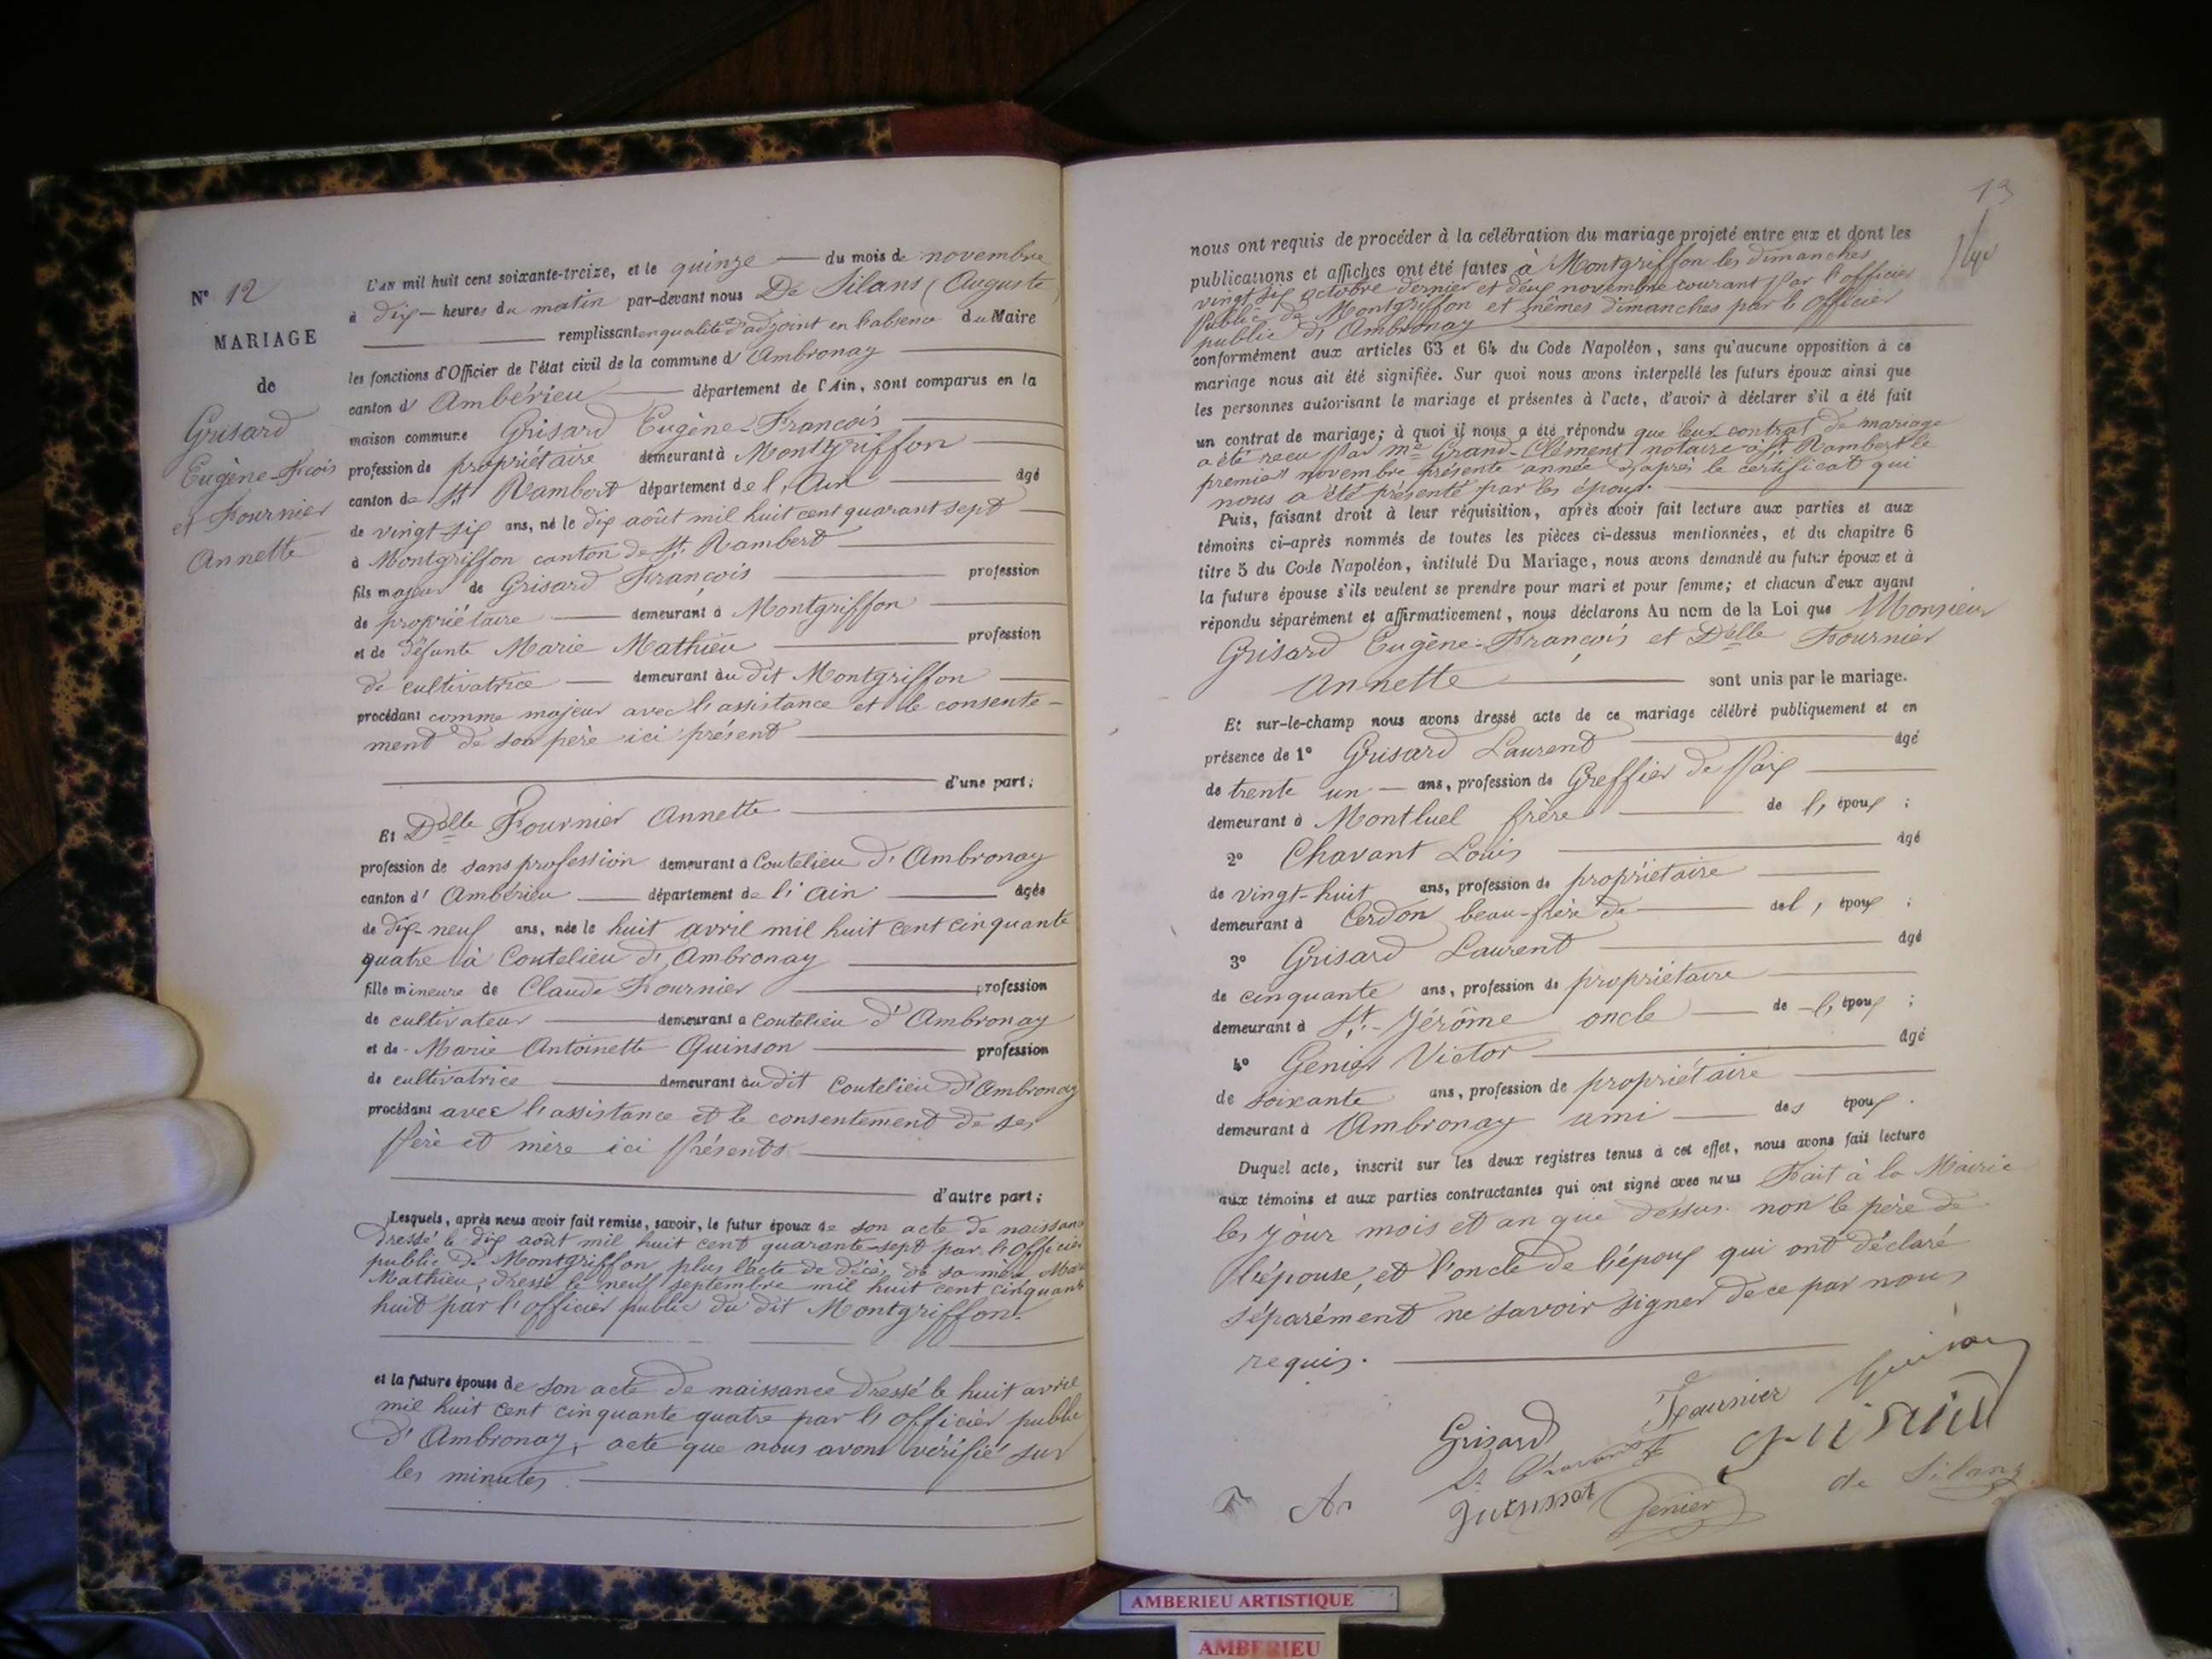 N° 12
MARIAGE
de
Grisard
Eugène-Fcois
et Fournier
Annette
L'AN mil huit cent soixante-treize, et le quinze du mois de novembre
à dix heures du matin par-devant nous De Silans (Auguste)
remplissant en qualité d'adjoint en l'absence du Maire
les fonctions d'Officier de l'état civil de la commune d'Ambronay
canton d'Ambérieu département de l'Ain, sont comparus en la
maison commune Grisard Eugène-François
profession de propriétaire demeurant à Montgriffon
canton de St. Rambert département de l'Ain âgé
de vingt six ans, né le dix août mil huit cent quarant sept
à Montgriffon canton de St. Rambert
fils majeur de Grisard François profession
de propriétaire demeurant à Montgriffon
et de défunte Marie Mathieu profession
de cultivatrice demeurant au dit Montgriffon
procédant comme majeur avec l'assistance et le consente-
ment de son père ici présent
d'une part;
Et Delle Fournier Annette
profession de sans profession demeurant à Coutelieu d'Ambronay
canton d'Ambérieu département de l'Ain âgée
de dix-neuf ans, née le huit avril mil huit cent cinquante
quatre à Coutelieu d'Ambronay
fille mineure de Claude Fournier profession
de cultivateur demeurant à Coutelieu d'Ambronay
et de Marie Antoinette Quinson profession
de cultivatrice demeurant au dit Coutelieu d'Ambronay
procédant avec l'assistance et le consentement de ses
père et mère ici présents
d'autre part;
Lesquels, après nous avoir fait remise, savoir, le futur époux de son acte de naissance
dressé le dix août mil huit cent quarante-sept par l'officier
public de Montgriffon, plus l'acte de décès de sa mère Marie
Mathieu, dressé le neuf septembre mil huit cent cinquante
huit par l'officier public du dit Montgriffon.
et la future épouse de son acte de naissance dressé le huit avril
mil huit cent cinquante quatre par l'officier public
d'Ambronay, acte que nous avons vérifié sur
les minutes
13
nous ont requis de procéder à la célébration du mariage projeté entre eux et dont les
publications et affiches ont été faites à Montgriffon les dimanches
vingt six octobre dernier et deux novembre courant par l'officier
public de Montgriffon et mêmes dimanches par l'officier
public d'Ambronay
conformément aux articles 63 et 64 du Code Napoléon, sans qu'aucune opposition à ce
mariage nous ait été signifiée. Sur quoi nous avons interpellé les futurs époux ainsi que
les personnes autorisant le mariage et présentes à l'acte, d'avoir à déclarer s'il a été fait
un contrat de mariage; à quoi il nous a été répondu que leur contrat de mariage
a été reçu par Me Grand-Clément notaire à St. Rambert le
premier novembre présente année d'après le certificat qui
nous a été présenté par les époux.
Puis, faisant droit à leur réquisition, après avoir fait lecture aux parties et aux
témoins ci-après nommés de toutes les pièces ci-dessus mentionnées, et du chapitre 6
titre 5 du Code Napoléon, intitulé Du Mariage, nous avons demandé au futur époux et à
la future épouse s'ils veulent se prendre pour mari et pour femme; et chacun d'eux ayant
répondu séparément et affirmativement, nous déclarons Au nom de la Loi que Monsieur
Grisard Eugène-François et Delle Fournier
Annette sont unis par le mariage.
Et sur-le-champ nous avons dressé acte de ce mariage célébré publiquement et en
présence de 1° Grisard Laurent âgé
de trente un ans, profession de Greffier de Paix
demeurant à Montluel frère de l'époux;
2° Chavant Louis âgé
de vingt-huit ans, profession de propriétaire
demeurant à Cerdon beau-frère de de l'époux;
3° Grisard Laurent âgé
de cinquante ans, profession de propriétaire
demeurant à St.-Jérôme oncle de l'époux;
4° Genier Victor âgé
de soixante ans, profession de propriétaire
demeurant à Ambronay ami des époux.
Duquel acte, inscrit sur les deux registres tenus à cet effet, nous avons fait lecture
aux témoins et aux parties contractantes qui ont signé avec nous Fait à la Mairie
les jour mois et an que dessus. non le père de
l'épouse, et l'oncle de l'époux qui ont déclaré
séparément ne savoir signer de ce par nous
requis.
Fournier
Grisard
L. Chavant
Grisard
Genier
de Silans
AMBERIEU ARTISTIQUE
AMBERIEU